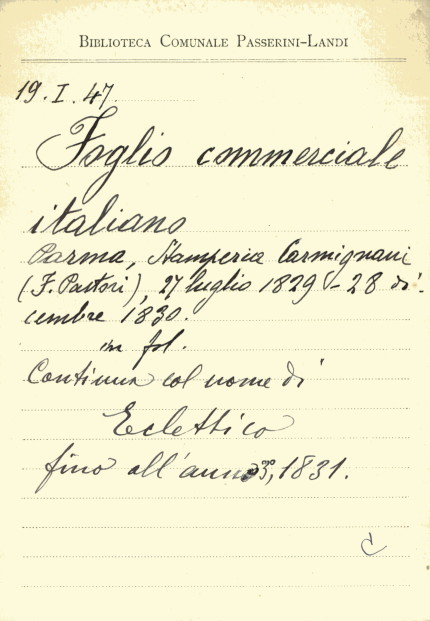 BIBLIOTECA COMUNALE PASSERINI-LANDI
19. I. 47.
Foglio commerciale
italiano
Parma, Stamperia Carmignani
(F. Pastori), 27 luglio 1829 - 28 di-
cembre 1830.
in fol.
Continua col nome di
Eclettico
fino all'anno 3º, 1831.
C